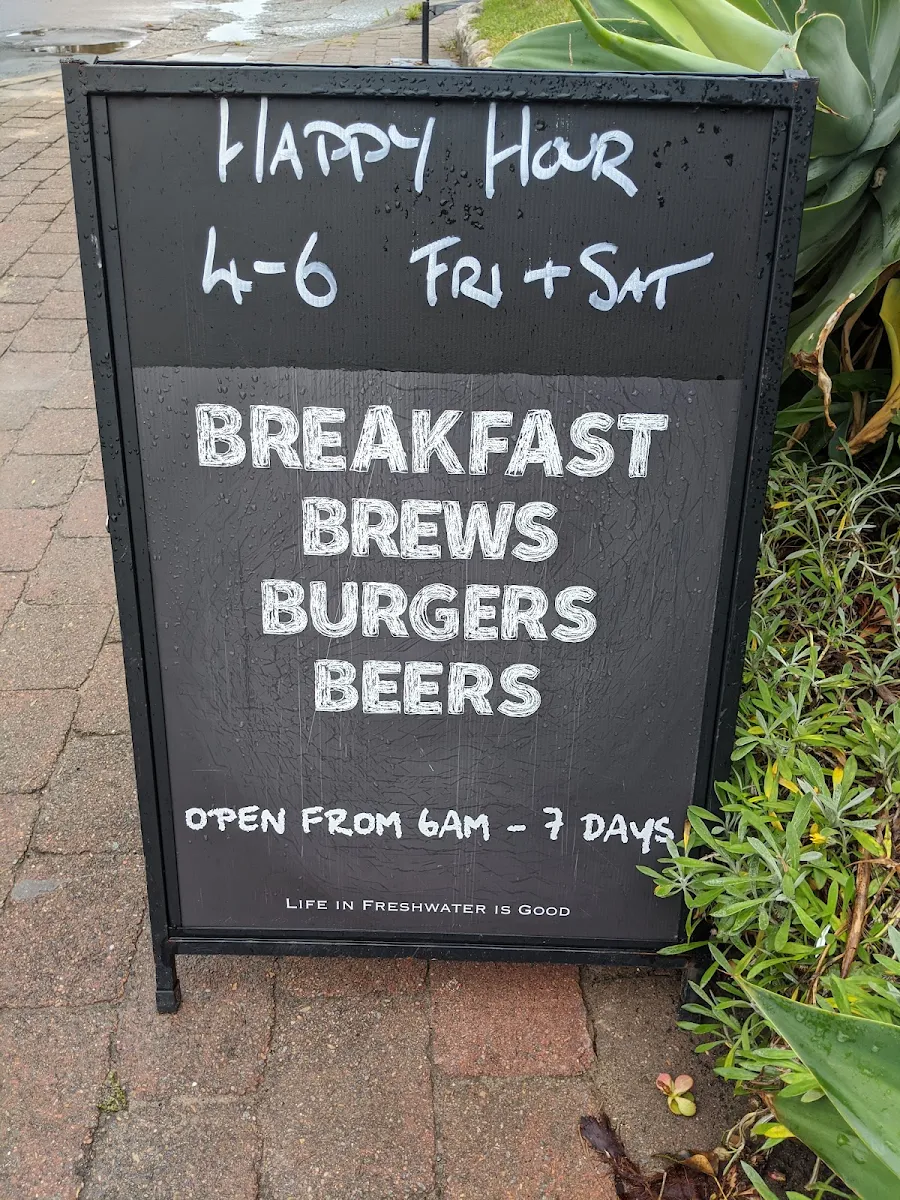 HAPPY HOUR
4-6 FRI + SAT
BREAKFAST
BREWS
BURGERS
BEERS
OPEN FROM 6AM - 7 DAYS
LIFE IN FRESHWATER IS GOOD